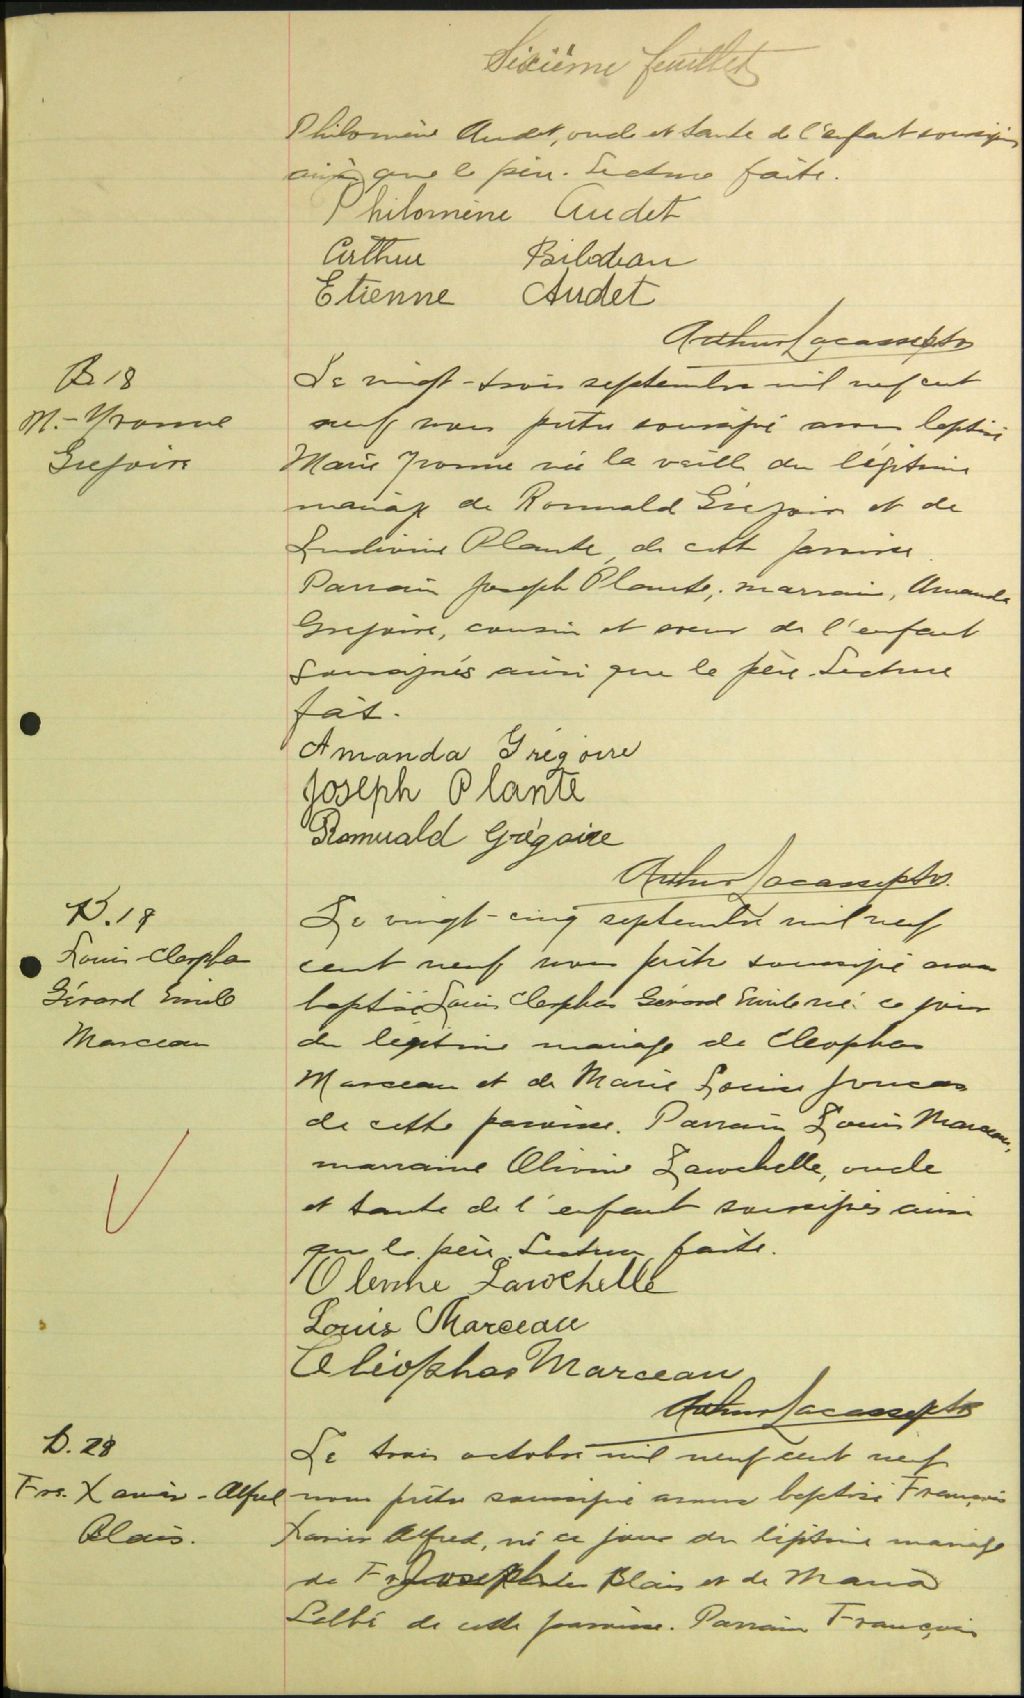 Sixième feuillet
Philomène Audet, oncle et tante de l'enfant soussignés
ainsi que le père. Lecture faite.
Philomène Audet
Arthur Bilodeau
Etienne Audet
Arthur Lacasse ptre
B. 18
M.-Yvonne
Grégoire
Le vingt-trois septembre mil neuf cent
neuf nous prêtre soussigné avons baptisé
Marie Yvonne née la veille du légitime
mariage de Romuald Grégoire et de
Ludivine Plante, de cette paroisse.
Parrain Joseph Plante; marraine, Amanda
Grégoire, cousin et soeur de l'enfant
soussignés ainsi que le père. Lecture
faite.
Amanda Grégoire
Joseph Plante
Romuald Grégoire
Arthur Lacasse ptre.
B. 19
Louis-Cleophas
Gérard Emile
Marceau
Le vingt-cinq septembre mil neuf
cent neuf nous prêtre soussigné avons
baptisé Louis Cleophas Gérard Emile né ce jour
du légitime mariage de Cleophas
Marceau et de Marie Louise
de cette paroisse. Parrain Louis Marceau,
marraine Olivine Larochelle, oncle
et tante de l'enfant soussignés ainsi
que le père. Lecture faite.
Larochelle
Louis Marceau
Cléophas Marceau
Arthur Lacasse ptre
B. 20
Frs. Xavier-Alfred
Blais.
Le trois octobre mil neuf cent neuf
nous prêtre soussigné avons baptisé François
Xavier Alfred, né ce jour du légitime mariage
de Joseph Blais et de Maria
Labbé de cette paroisse. Parrain François